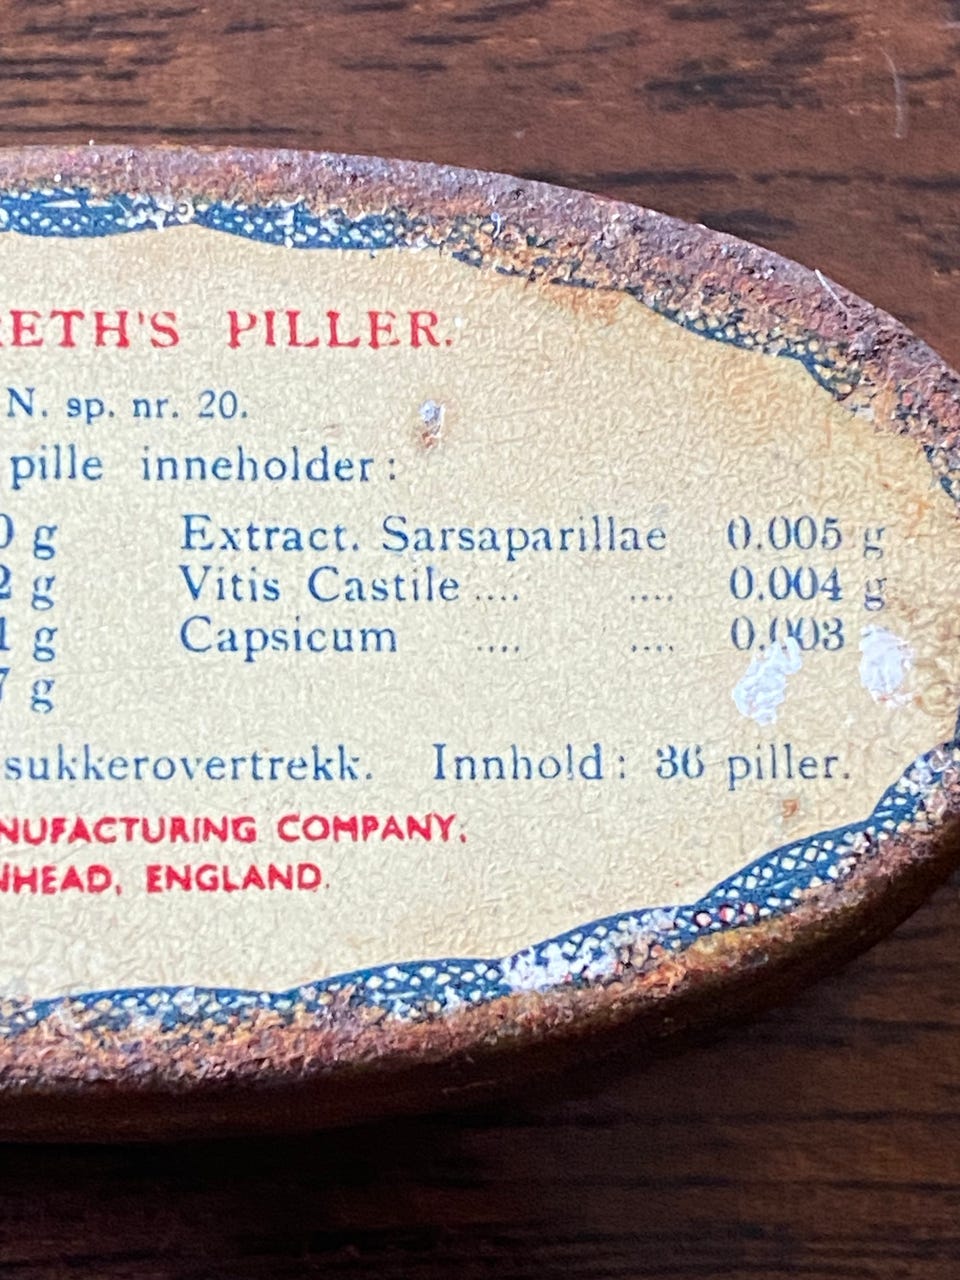 RETH'S PILLER.
N. sp. nr. 20.
pille inneholder:
0 g Extract. Sarsaparillae 0.005 g
2 g Vitis Castile .... .... 0.004 g
1 g Capsicum .... .... 0.003
7 g
sukkerovertrekk. Innhold: 36 piller.
NUFACTURING COMPANY,
NHEAD, ENGLAND.